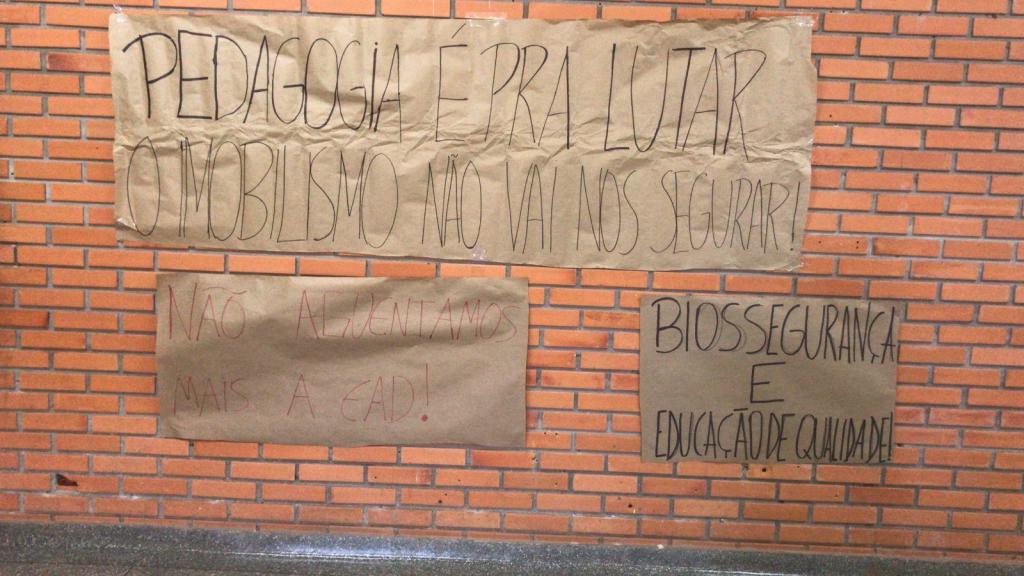 PEDAGOGIA É PRA LUTAR
O IMOBILISMO NÃO VAI NOS SEGURAR!
NÃO AGUENTAMOS
MAIS A EAD!
BIOSSEGURANÇA
E
EDUCAÇÃO DE QUALIDADE!